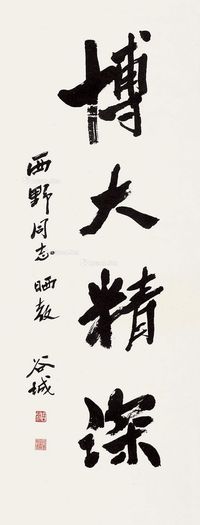 博大精深
西野同志晒教
谷城